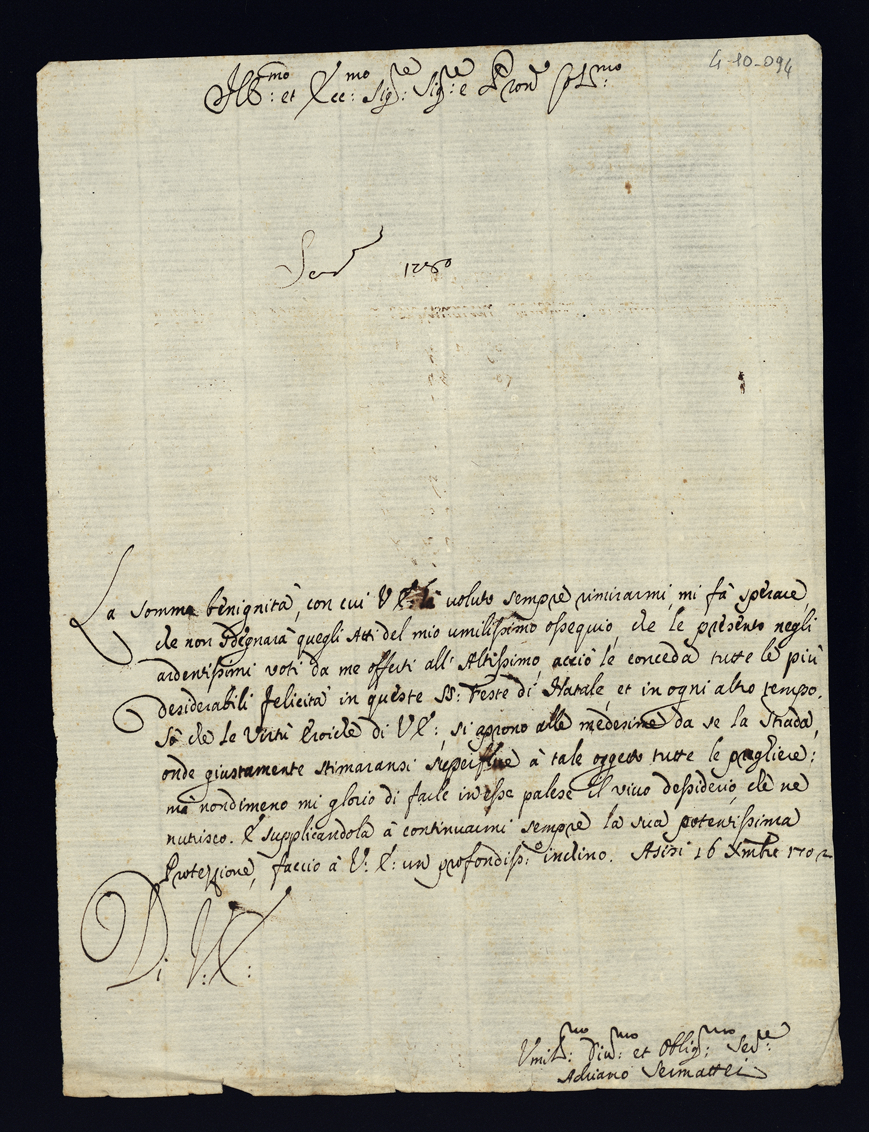 4-10-094
Ill.mo et Ecc.mo Sig.re Sig.re e Pron Col.mo
La somma benignità, con cui V.E. hà voluto sempre rimirarmi, mi fà sperare,
che non sdegnarà quegli Atti del mio umilissimo ossequio, che le presento negli
ardentissimi voti da me offerti all'Altissimo, acciò le conceda tutte le più
desiderabili felicità in queste SS: Feste di Natale, et in ogni altro tempo.
Sò che le Virtù Eroiche di V.E:, si aprono alle medesime da se la strada,
onde giustamente stimaransi superflue à tale oggetto tutte le preghiere:
mà nondimeno mi glorio di farle in esse palese il vivo dessiderio, che ne
nutrisco. E supplicandola à continuarmi sempre la sua potentissima
Protezzione, faccio à V: E: un profondiss:o inclino. Asisi 16 Xmbre 1702
Di V: E:
Umil.mo Div.mo et Oblig.mo Ser.re
Adriano Sermattei